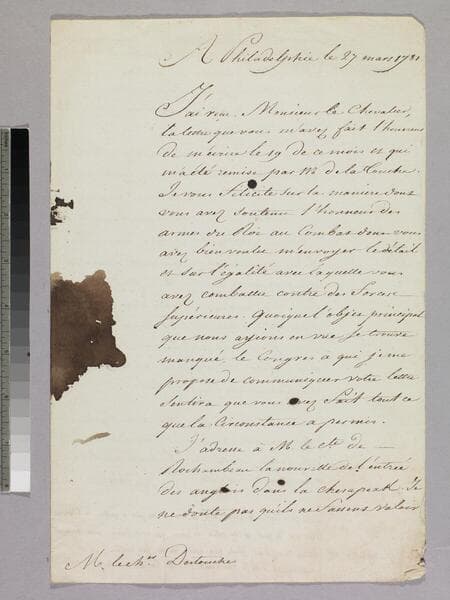 A Philadelphie le 27 mars 1781
J'ai reçu Monsieur le Chevalier,
la lettre que vous m'avez fait l'honneur
de m'écrire le 19 de ce mois et qui
m'a été remise par M. de la Touche.
Je vous félicite sur la manière dont
vous avez soutenu l'honneur des
armes du Roi au Combat dont vous
avez bien voulu m'envoyer le détail
et sur l'égalité avec laquelle vous
avez combattu contre des forces
supérieures. Quoique l'objet principal
que nous ayions en vue se trouve
manqué le Congres a qui je me
propose de communiquer votre lettre
sentira que vous avez fait tout ce
que la Circonstance a permis.
J'adresse à M. le Cte. de
Rochambeau la nouvelle de l'entrée
des anglois dans la Chesapeak. Je
ne doute pas qu'ils ne fassent valoir
M. le Chr. Destouches